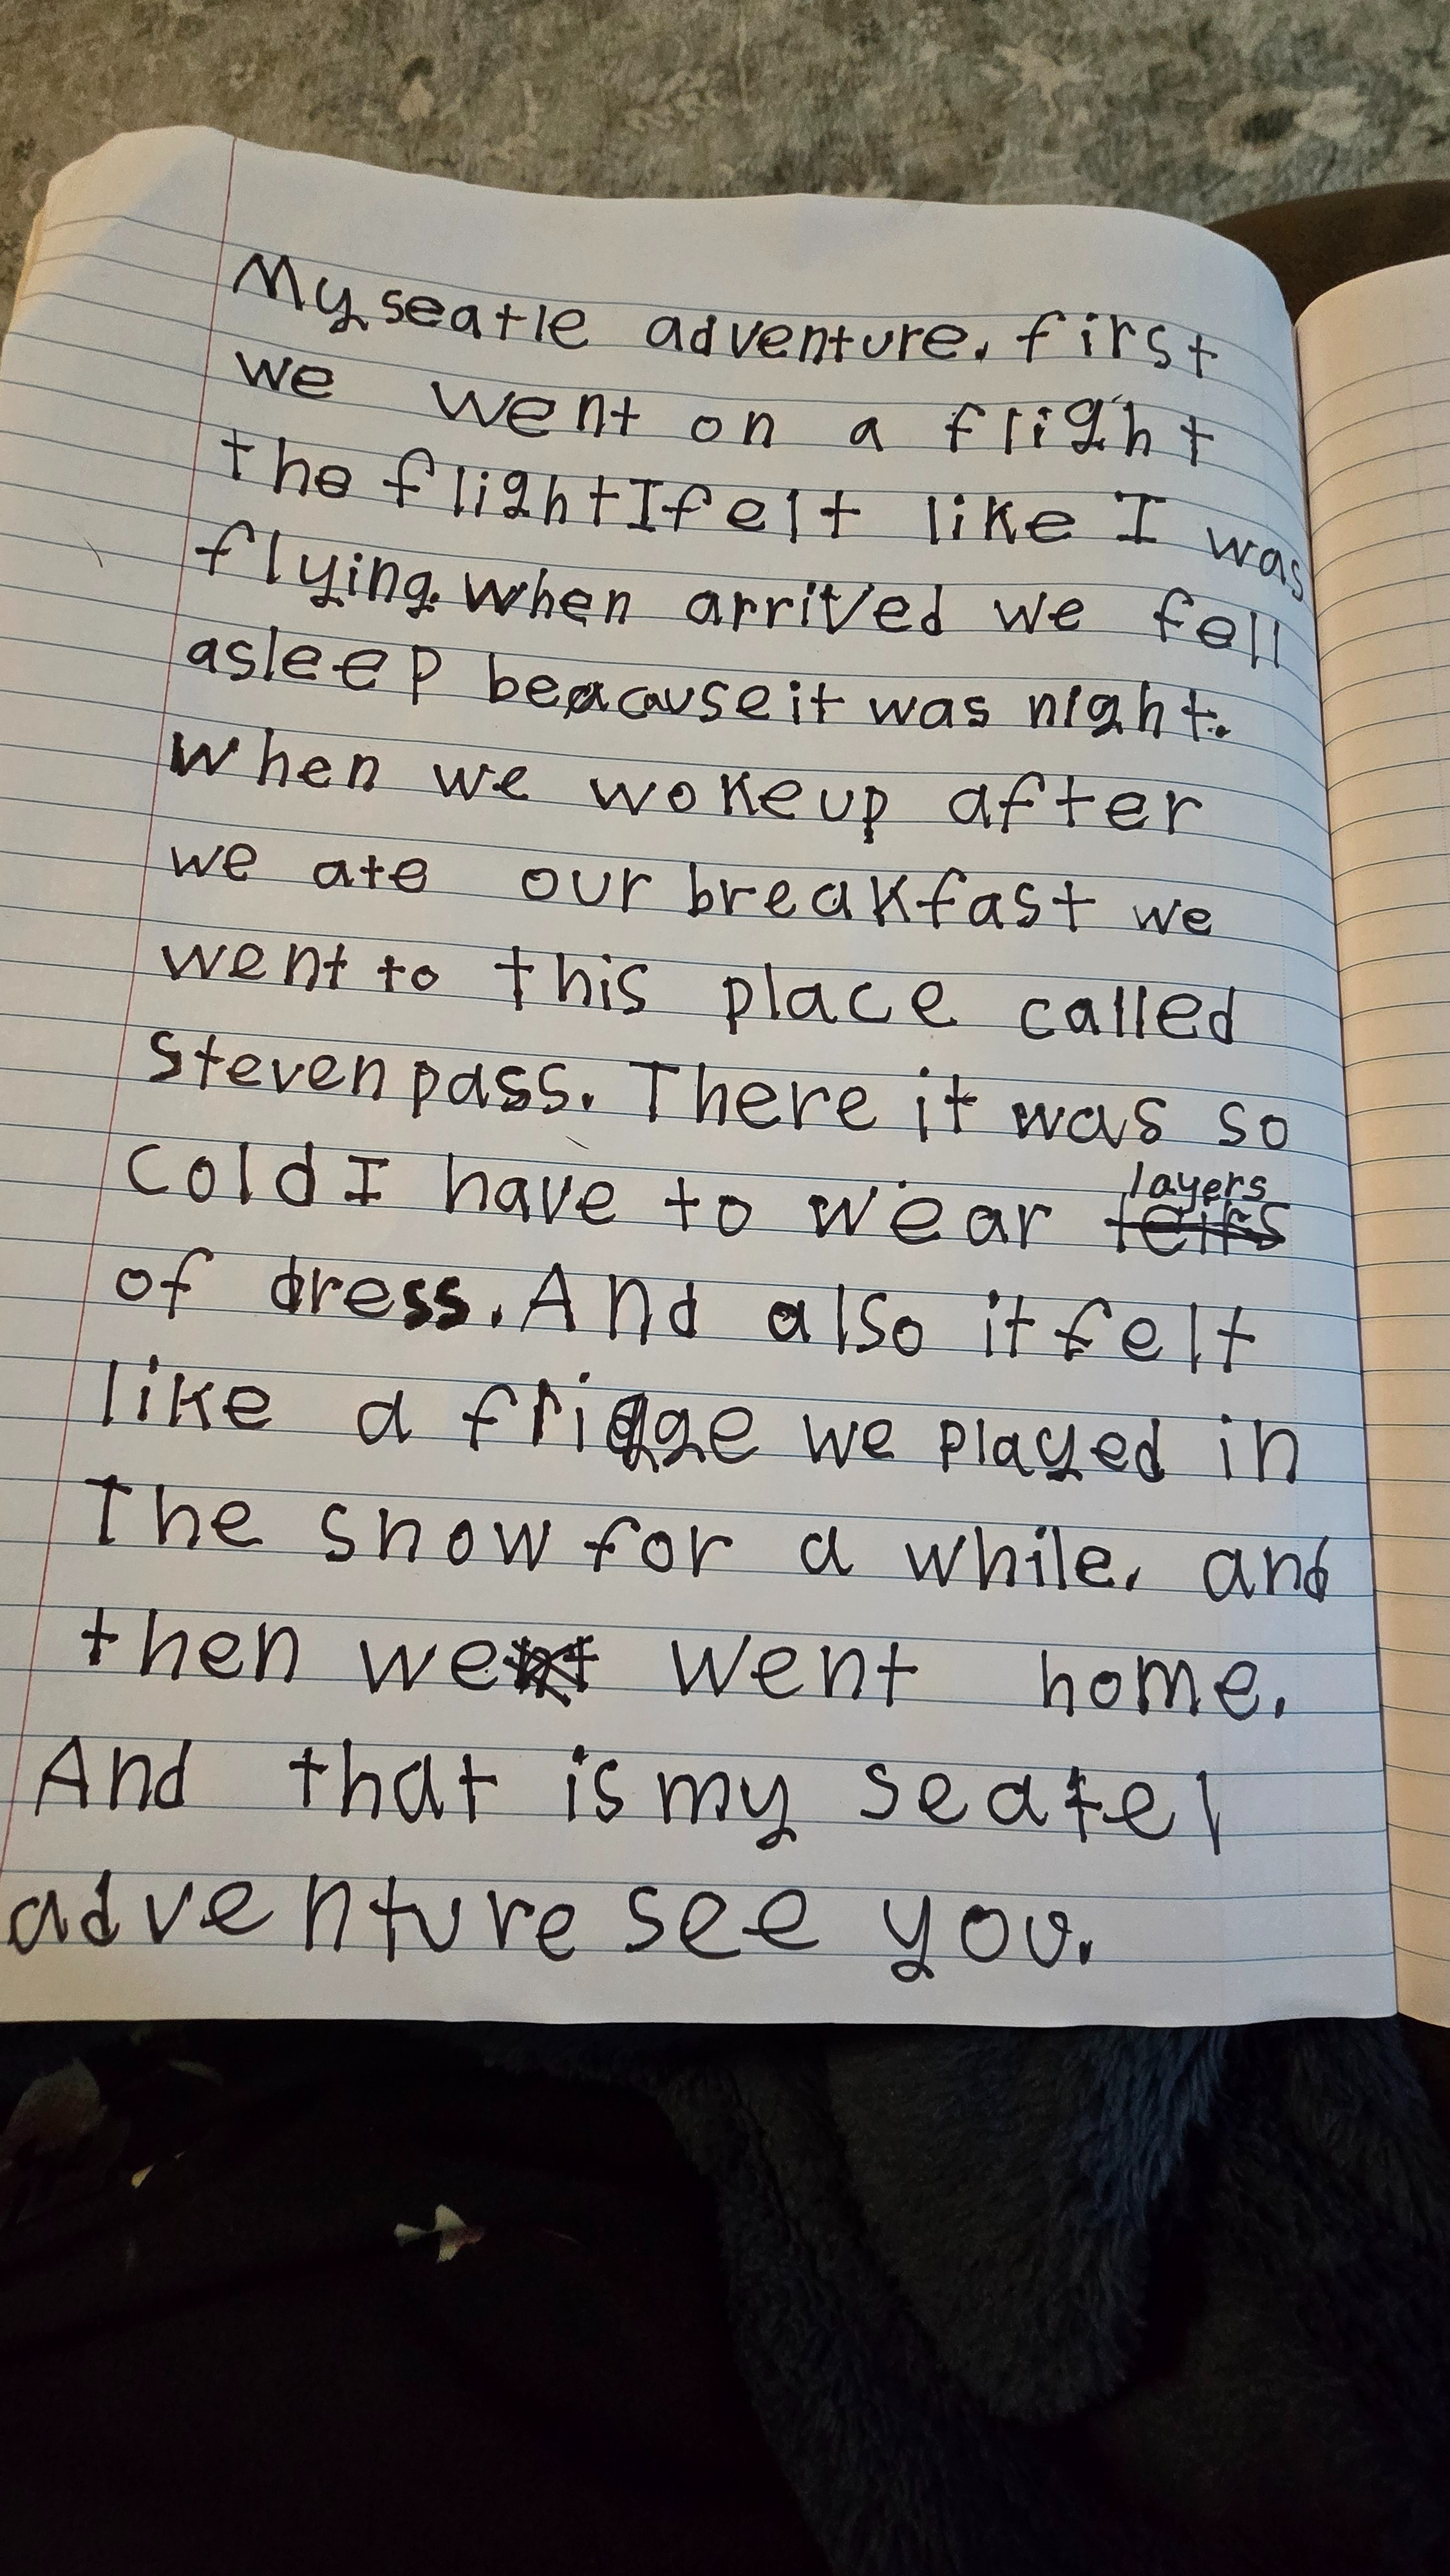 My seatle adventure. first
we went on a flight
the flight I felt like I was
flying. when arrived we fell
asleep beacause it was night.
When we woke up after
we ate our breakfast we
went to this place called
Steven pass. There it was so
cold I have to wear layers
of dress. And also it felt
like a fridge we played in
The snow for a while. and
then we went home.
And that is my seatel
adventure see you.